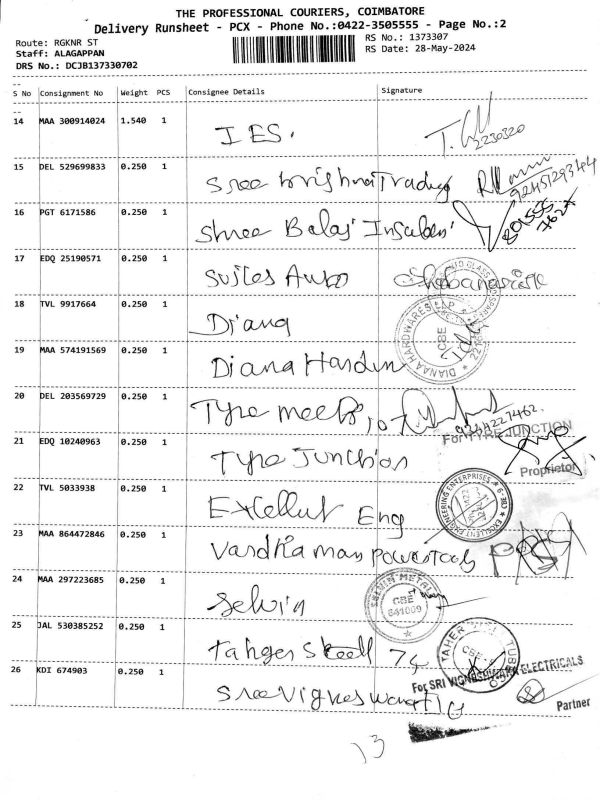 THE PROFESSIONAL COURIERS, COIMBATORE
Delivery Runsheet - PCX - Phone No.:0422-3505555 - Page No.:2
Route: RGKNR ST
Staff: ALAGAPPAN
DRS No.: DCJB137330702
RS No.: 1373307
RS Date: 28-May-2024
S No Consignment No Weight PCS Consignee Details Signature
14 MAA 300914024 1.540 1 IES.
15 DEL 529699833 0.250 1 Sree Krishna Trading
16 PGT 6171586 0.250 1 Shree Balaji
17 EDQ 25190571 0.250 1
18 TVL 9917664 0.250 1 Diana
DIANAA HARDWARES CBE
19 MAA 574191569 0.250 1 Diana
20 DEL 203569729 0.250 1 Tyre
For TYRE JUNCTION
21 EDQ 10240963 0.250 1 Tyre Junction
Proprietor
22 TVL 5033938 0.250 1 Excellent Eng
EXCELLENT ENGINEERING ENTERPRISES CBE-9
23 MAA 864472846 0.250 1 Vardhaman Powertools
24 MAA 297223685 0.250 1 Selvin
SELVIN METAL CBE 641009
25 JAL 530385252 0.250 1 Taher Steell
TAHER STEEL TUBES CBE
26 KDI 674903 0.250 1
For SRI VIGNESHWARA ELECTRICALS
Partner
13